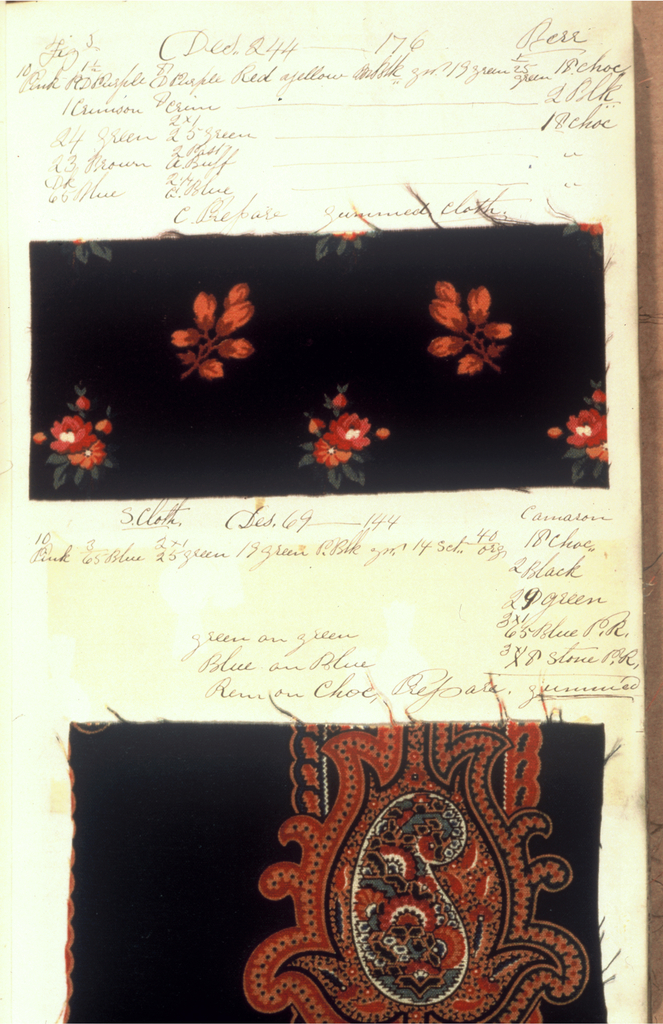 Fig 3 Des. 244 — 176
10 Pink Purple Purple Red yellow Blk 19 green 25 green 18 choc
1 Crimson Crim 2 Blk
24 green 2x1 25 green 18 choc
23 Brown Buff "
Dk 65 Blue Blue "
C. Prepare gummed cloth.
S. Cloth. Des. 69 — 144 Camaron
10 Pink 3 65 Blue 2x1 25 green 19 green P. Blk 14 Sct. 40 org 18 Choc.
2 Black
29 green
green on green 3x1 65 Blue P.R.
Blue on Blue 3x1 18 Stone P.R.
Rem on Choc, Prepare. gummed